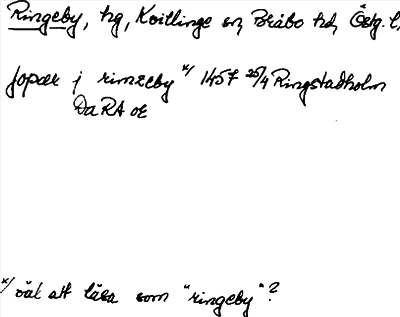 Ringeby, hg, Kvillinge sn, Bråbo hd, Östg. l.
jopær j rimzeby x/ 1457 25/4 Ringstadholm
DaRA oE
x/ väl att läsa som "ringeby"?